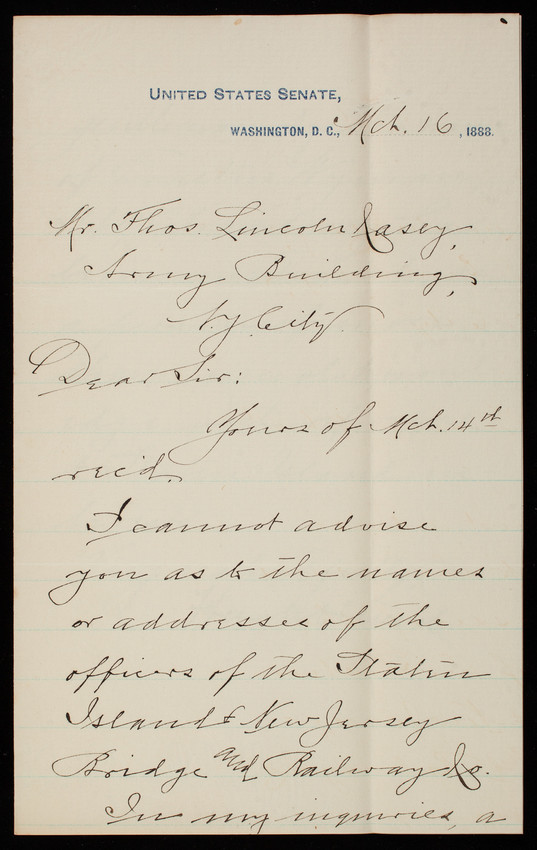 UNITED STATES SENATE,
WASHINGTON, D. C., Mch. 16, 1888.
Mr. Thos. Lincoln Casey,
Army Building,
N.Y. City.
Dear Sir:
Yours of Mch. 14th
rec'd.
I cannot advise
you as to the names
or addresses of the
officers of the Staten
Island & New Jersey
Bridge and Railway Co.
In my inquiries, a